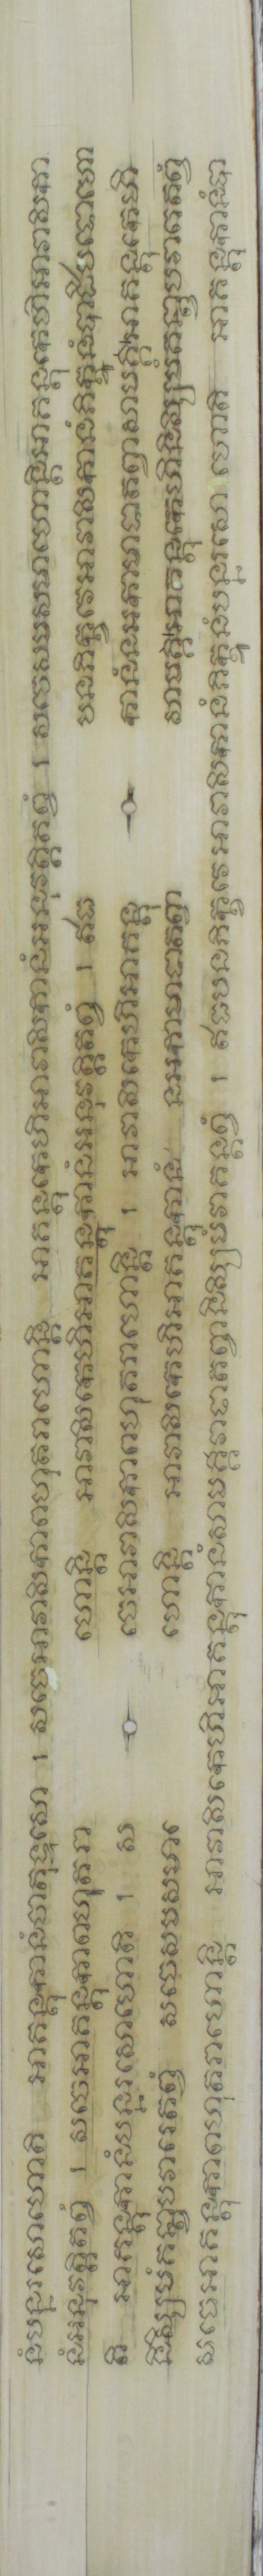 នំបន្នរសោហោតិ អាគន្តុកានំចាតុទ្ទសោ ។ សចេអាវាសិកាពហុតរាហោន្តិ អាគន្តុកេហិអាវាសិកានំអនុវត្តិតព្វំ ។ សចេសមសមាហោន្តិអាគន្តុកេហិអាវាសិកា
នំអនុវត្តិតព្វំ ។ សចេអាគន្តុកាពហុតរា ហោន្តិ អាវាសិកេហិអាគន្តុកានំអនុវត្តិតព្វំ ។ ឥធ បនភិក្ខវេអាវាសិកានំភិក្ខូនំបាដិបទោហោ
តិ អាគន្តុកានំបន្នរសោហោតិ ។ ស ចេអាវាសិកាពហុតរាហោន្តិ ។ អាវាសិកេហិអាគន្តុ កានំនអកាមាទាតព្វាសាមគ្គីអាគន្តុកេហិ
និស្សីមំគន្ត្វាឧបោសថោកាតព្វំ សចេសមសមា ហោន្តិ អាវាសិកេហិអាគន្តុកានំ នអកាមាទាតព្វា សាមគ្គីអាគន្តុកេហិនិស្សីមំគន្ត្វា
សចេអាគន្តុកាពហុតរាហោន្តិ អាវាសិកេហិអាគន្តុកានំសាមគ្គីវាទាតព្វានិស្សីមំវាគន្តព្វំ ។ ឥធបនភិក្ខវេអាវាសិកានំភិក្ខូនំបន្នរសោ ហោតិ អាគន្តុកានំបា